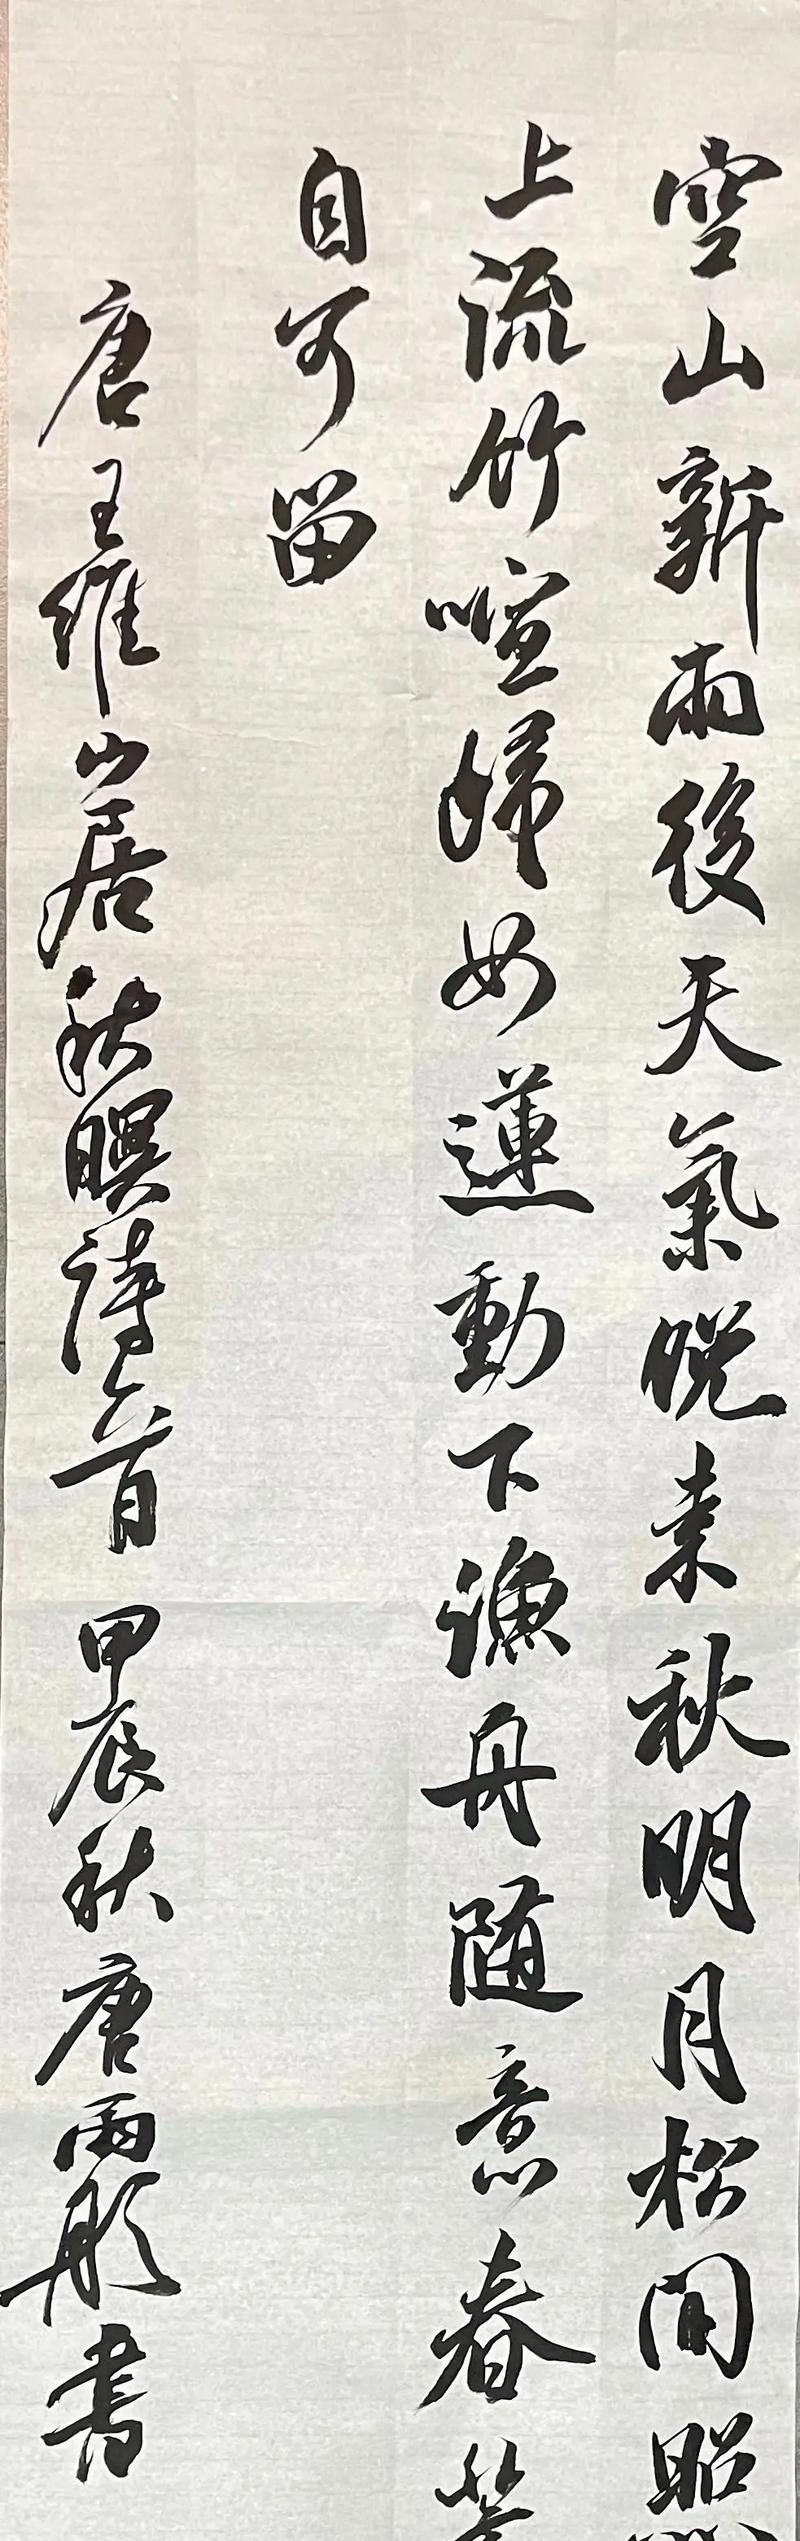 空山新雨後天氣晚来秋明月松間照
上流竹喧歸女蓮動下漁舟随意春
自可留
唐王維山居秋暝詩一首 甲辰秋唐雨彤書